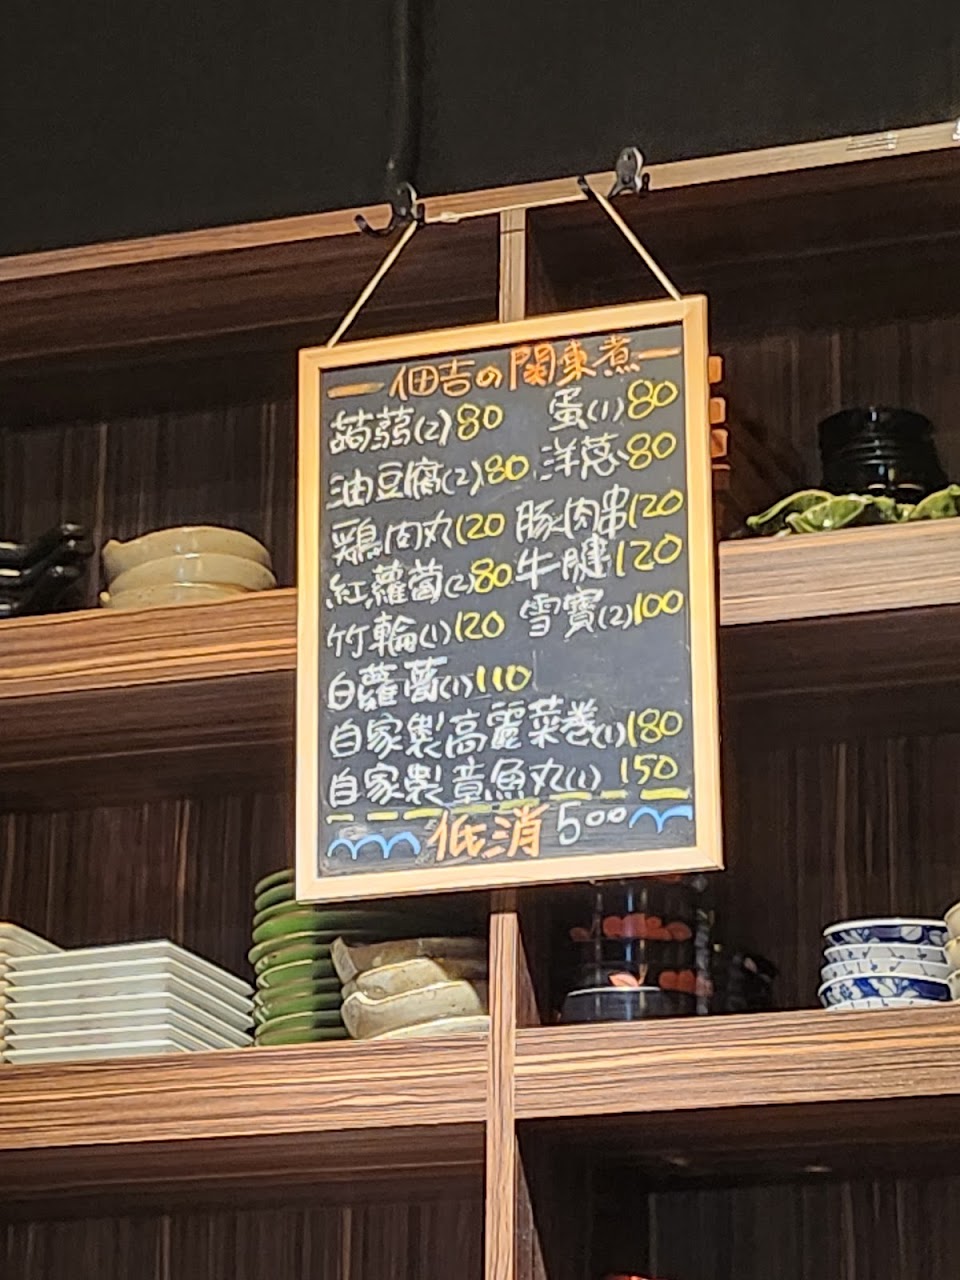 佃吉の関東煮
蒟蒻(2)80 蛋(1)80
油豆腐(2)80 洋葱80
鶏肉丸120 豚肉串120
紅蘿蔔(2)80 牛腱120
竹輪(1)120 雪寶(2)100
白蘿蔔(1)110
自家製高麗菜卷(1)180
自家製章魚丸(1) 150
低消500